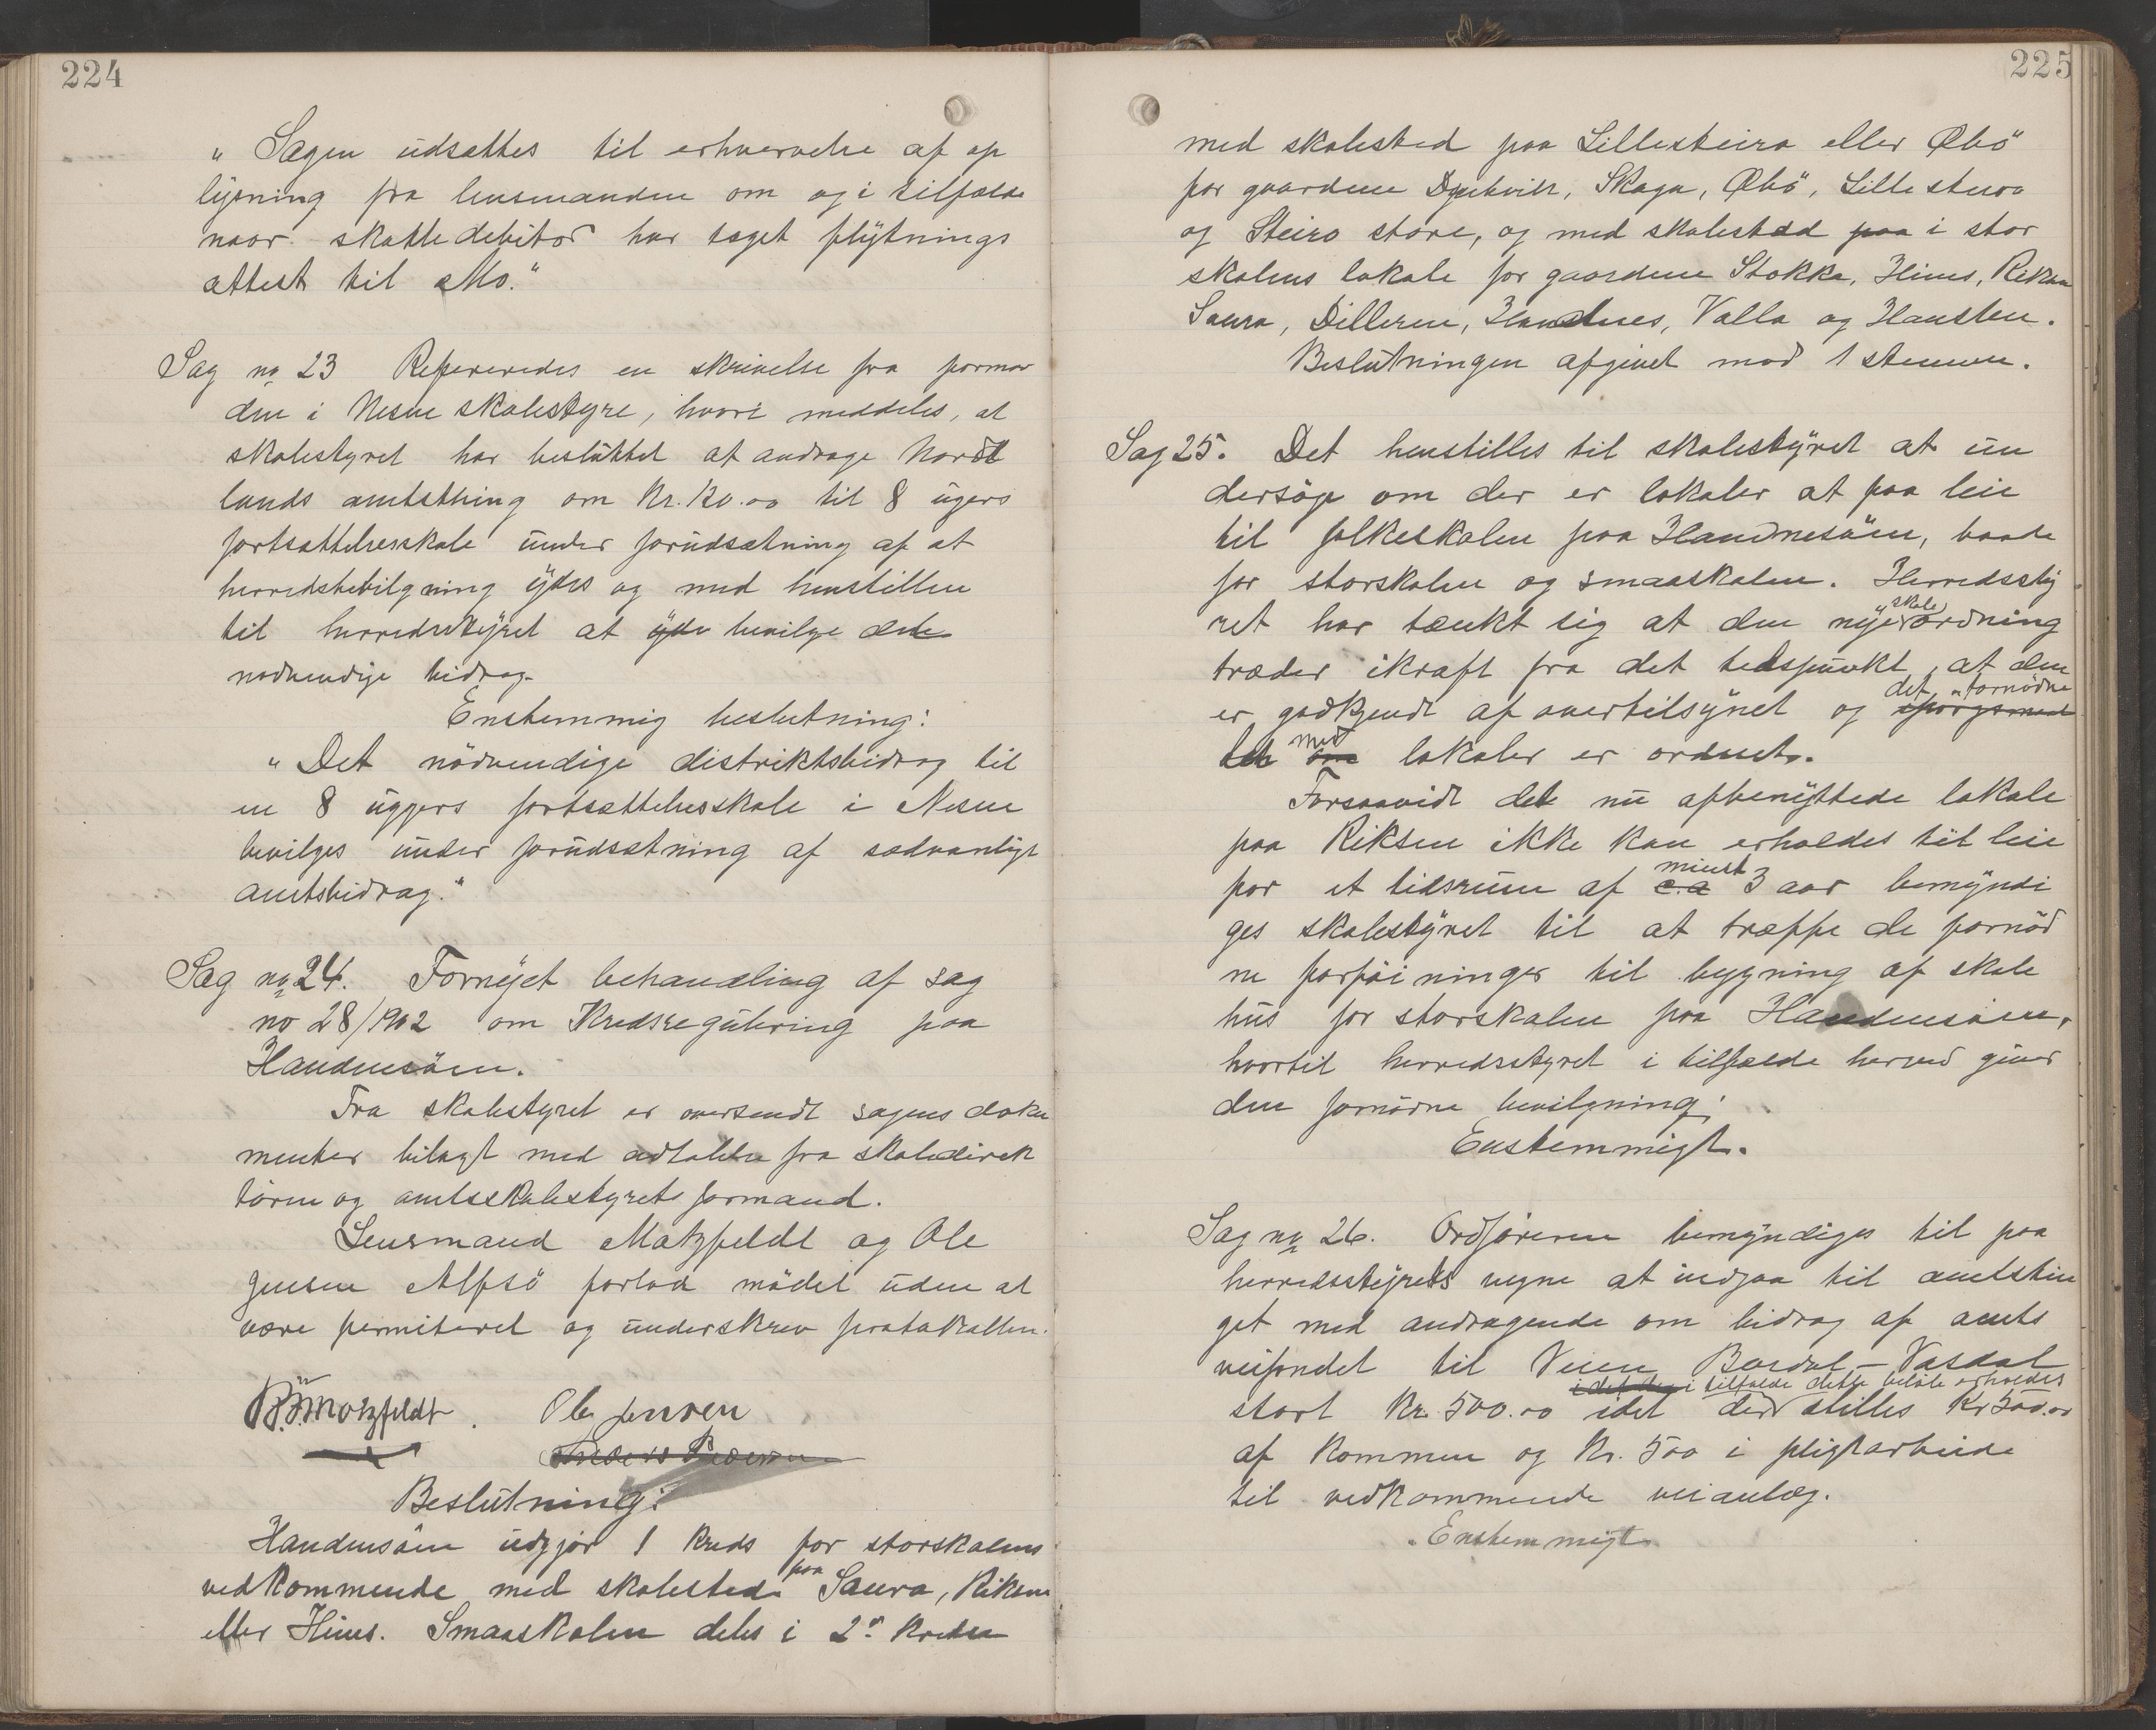 224
„Sagen udsættes til erhvervelse af op
lysning fra lensmanden om og i tilfælde
naar skattedebitor har taget flytnings
attest til Mo."
Sag no 23 Refereredes en skrivelse fra forman
den i Nesne skolestyre, hvori meddeles, at
skolestyret har besluttet at andrage Nord
lands amtsthing om Kr. 120.00 til 8 ugers
fortsættelsesskole under forudsætning af at
herredsbevilgning ydes og med henstillen
til herredsstyret at yde bevilge det
nødvendige bidrag.
Enstemmig beslutning:
„Det nödvendige distriktsbidrag til
en 8 uggers fortsættelsesskole i Nesne
bevilges under forudsætning af sædvanligt
amtsbidrag."
Sag no 24. Fornyet behandling af sag
no 28/1902 om Kredsregulering paa
Handnesöen.
Fra skolestyret er oversendt sagens doku
menter bilagt med udtalelse fra skoledirek
tören og amtsskolestyrets formand.
Lensmand Motzfeldt og Ole
Jensen Alfsö forlod mödet uden at
være permiteret og underskrev protokollen.
Motzfeldt. Ole Jensen
Beslutning:
Handnesöen udgjör 1 kreds for storskolens
paa
vedkommende med skolested Saura, Riksen
eller Hines. Smaaskolen deles i 2 kredse
225
med skolested paa Lillesteiro eller Øbö
for gaardene Skaga, Øbö, Lillesteiro
og Steiro store, og med skolested paa i stor
skolens lokale for gaardene Stokka, Hines, Riksen
Saura, Dilleren, Handnes, Valla og Hansten.
Beslutningen afgivet mod 1 stemme.
Sag 25. Det henstilles til skolestyret at un
dersöge om der er lokaler at faa leie
til folkeskolen paa Handnesöen, baade
for storskolen og smaaskolen. Herredssty
skole
ret har tænkt sig at den nye ordning
træder ikraft fra det tidspunkt, at den
det fornödne
er godkjendt af overtilsynet og spörgsmaa
med
let om lokaler er ordnet.
Forsaavidt det nu afbenyttede lokale
paa Riksen ikke kan erholdes til leie
minst
for et tidsrum af c.a 3 aar bemyndi
ges skolestyret til at træffe de fornöd
ne forföininger til bygning af skole
hus for storskolen paa Handnesöen,
hvortil herredsstyret i tilfælde herved giver
den fornödne bevilgning:
Enstemmigt.
Sag no 26. Ordföreren bemyndiges til paa
herredsstyrets vegne at indgaa til amtsthin
get med andragende om bidrag af amts
veifondet til Veien Bardal – Vasdal
i tilfælde dette beløb erholdes
stort Kr. 500.00 idet der stilles Kr 500.00
af kommunen og Kr. 500 i pligtarbeide
til vedkommende veianlæg.
Enstemmigt.